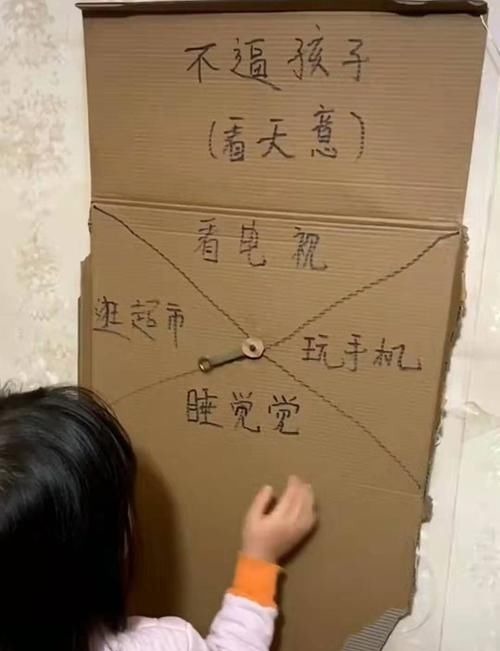 不逼孩子
(看天意)
看电视
逛超市
玩手机
睡觉觉